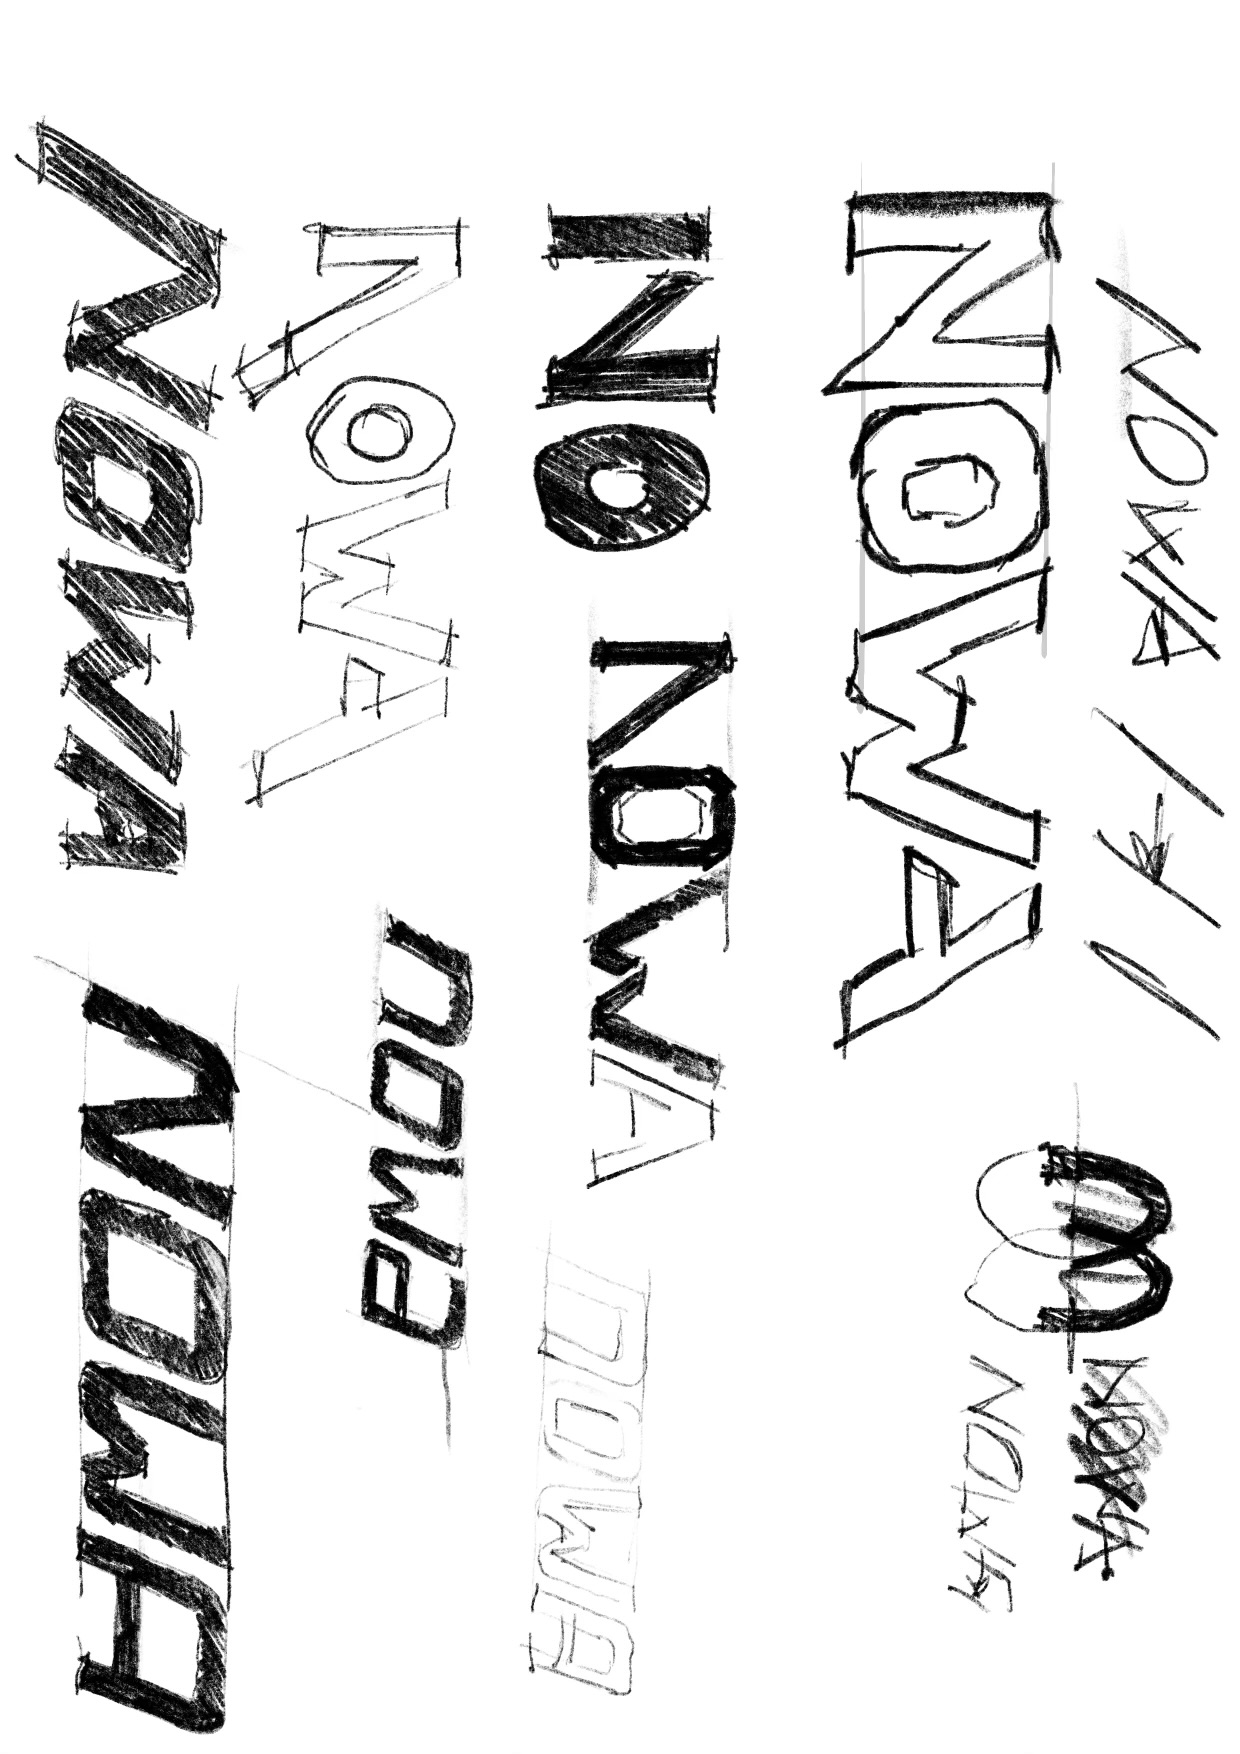 NOWA H I
NOWA
NOWA
NOWA
NO
NOWA
nowA
NOWA
nowa
NOWA
NOWA